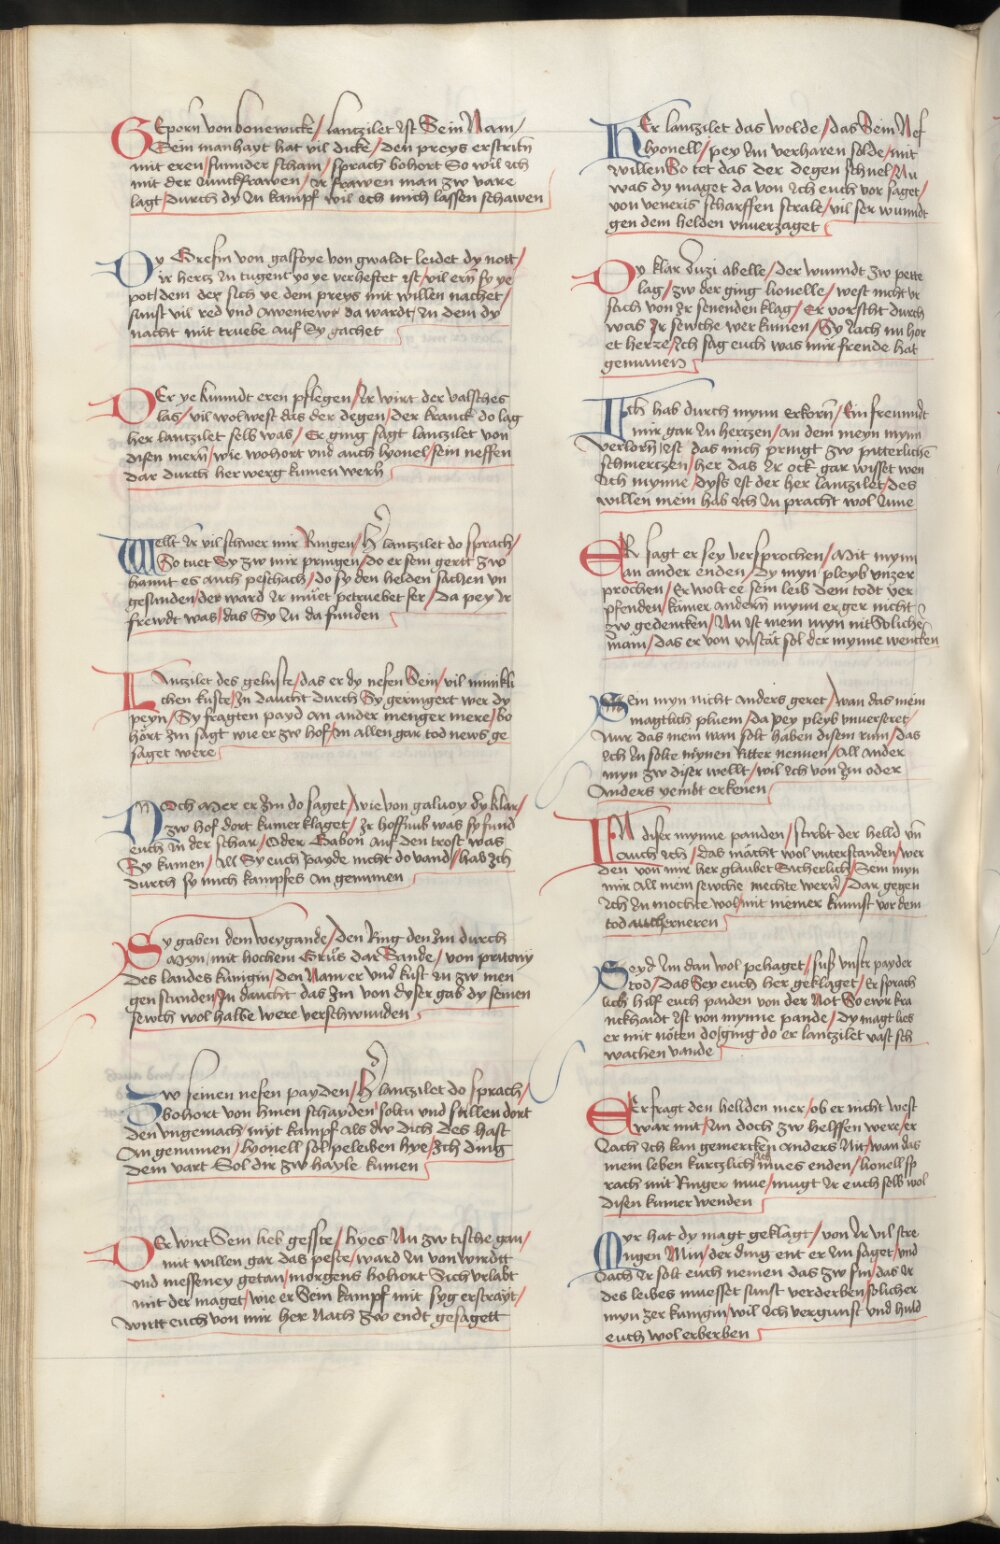 GEporn von bonewick/ lantzilet ist Sein Nam/
Sein manhayt hat vil dicke/ den preys erstritn
mit eren/ sunnder scham/ sprach bohort So wil ich
mit der Junckfrawen/ Ir frawen man zw vare
lagt/ durch dy In kampf wil ich mich lassen schawen
DY Grefin von galfoye von gwaldt leidet dy nott/
ir hertz In tugent yo ye verhefftet ist/ vil ern sy ye
pot/ dem der sich ye dem preys mit willen nachet/
sunst vil red und Awentewr da wardt/ In dem dy
nacht mit truebe auf Sy gachet
DEr ye kunndt eren pflegen/ Ir wirt der valsches
las/ vil wol west das der degen/ der kranck do lag
her lantzilet selb was/ Er ging sagt lantzilet von
disen mern/ wie wohort vnd auch lyonel/ sein neffen
dar durch herwerg kumen wern
Wellt Ir vil schwer mir Ringen/ H lantzilet do sprach/
So tuet Sy zw mir pringen/ do er sein gertt zw
hannt es auch peschach/ do sy den helden sachen vn
gesunden/ der ward Ir muet petruebet ser/ Da pey Ir
frewdt was/ das Sy In da funden
LAntzilet des geluste/ das er dy nefen Sein/ vil minikli
chen kuste/ In daucht durch Sy geringert wer dy
peyn/ Sy fragten payd An ander menger mere/ bo
hort Im sagt wie er zw hof/ In allen gar tod news ge
saget were
NOch Mer er Im do saget/ wie von galuoy dy klar/
zw hof dort kumer klaget/ Ir hoffnub was sy fund
euch In der schar/ Oder Gabon auf den trost was
Sy kumen/ All Sy euch payde nicht do vand/ hab Ich
durch sy mich kampfes An genumen
Sy gaben dem weygande/ den Ring den Im durch
Myn/ mit hochem Grus dar Sande/ von pritoniy
des landes kunigin/ den Nam er vnd kust In zw men
gen stunden/ In daucht das Im von dyser gab dy seinen
sewch wol halbe were verschwunden
Zw seinen nefen payden/ H lantzilet do sprach/
bohort von hinen schayden soltu vnd stillen dort
den vngemach/ myt kampf als dw dich des hast
An genumen/ lyonell sol peleiben hye/ Ich ding
dem vart Sol dir zw hayle kumen
DEr wirt Sein lieb gesste/ hyes Nu zw tische gan/
mit willen gar das peste/ ward In von wirdtt
vnd messeney getan/ morgens bohort Sich vrlabt
mit der maget/ wie er Sein kampf mit syg erstrayt/
Wirtt euch von mir her Nach zw endt gesagett
HEr lantzilet das wolde/ das Sein Nef
lyonell/ pey Im verharen solde/ mit
willen So tet das der degen schnel/ Nu
was dy maget da von Ich euch vor saget/
von veneris scharffen strale/ vil ser wunndt
gen dem helden vnuerzaget
DY klar Junzi abelle/ der wunndt zw pette
lag/ zw der ging lionelle/ west nicht vr
sach von Ir senenden klag/ Er vorscht durch
was Ir sewche wer kumen/ Sy Iach nu hor
et herze/ Ich sag euch was mir frende hat
genumen
Ich hab durch mynn erkorn/ Ein freunndt
mir gar In hertzen/ an dem meyn mynn
verlorn ist das mich pringt zw pitterlichen
schmertzen/ her das Ir ock gar wisset wen
Ich mynne/ dyss ist der her lantzilet/ des
willen mein hab Ich In pracht wol Inne
ER sagt er sey versprochen/ Mit mynn
an ander enden/ dy myn pleyb vnzer
prochen/ Er wolt ee sein leib dem todt ver
pfenden/ kainer andern mynn er ger nicht
zw gedencken/ Nu ist mein myn mit Soliche
main/ das er von vnstat sol der mynne wencken
Mein myn nicht anders geret/ wan das mein
magtlich pluem/ da pey pleyb vnuerseret/
Nur das mein man solt haben disem rum/ das
Ich In solte mynen Ritter nennen/ All ander
myn zw diser wellt/ wil Ich von Im oder
Anders yendt erkenen
IN diser mynne panden/ stirbt der helld vn
Auch Ich/ das macht wol vnterstanden/ wer
den von mir her glaubet Sicherlich/ Sein myn
mir All mein sewche mechte wern/ Dar gegen
Ich In mochte wol/ mit meiner kunnst vor dem
tod auch erneren
Seyd Im dan wol pehaget/ sus vnser payder
tod/ das Sey euch her geklaget/ Er sprach
lieb hilf euch paiden von der Not So ewr kra
nckhaidt ist von mynne pande/ Dy magt lies
er mit noten do/ ging do er lantzilet vast sch
wachen vande
Er fragt den hellden mer/ ob er nicht west
war mit/ Im doch zw helffen were/ er
Iach Ich kan gemercken anders Nit/ wan das
mein leben kurtzlich sich mues enden/ lionell sp
rach mit Ringer mue/ mugt Ir euch selb wol
disen kumer wenden
Myr hat dy magt geklagt/ von Ir vil stre
ngen Min/ der ding ent er Im saget/ vnd
Iach Ir solt euch nemen das zw sin/ das Ir
des leibes muesset sunst verderben/ solicher
myn zer kunigin/ wil Ich vergunst vnd huld
euch wol erberben